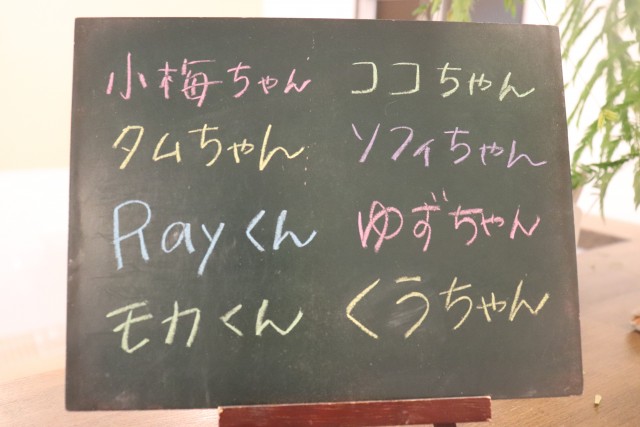 小梅ちゃん ココちゃん
タムちゃん ソフィちゃん
Rayくん ゆずちゃん
モカくん くうちゃん